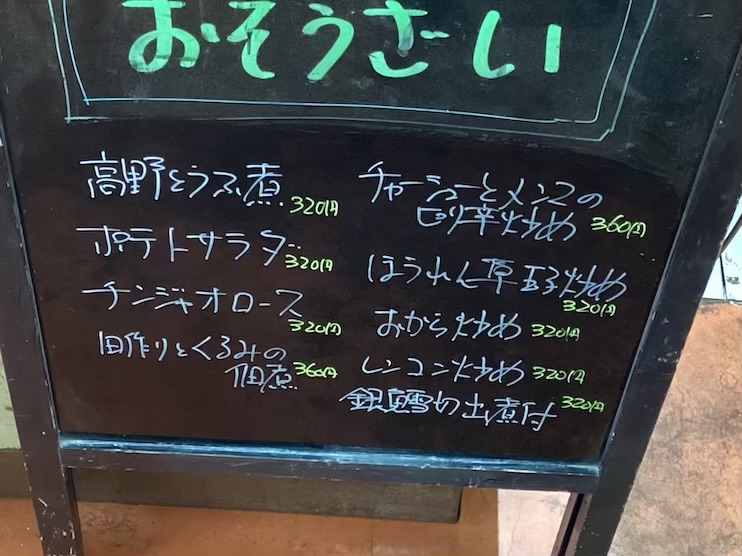 おそうざい
高野とうふ煮 320円
ポテトサラダ 320円
チンジャオロース
320円
田作りとくるみの
佃煮 360円
チャーシューとメンマの
ピリ辛炒め 360円
ほうれん草玉子炒め
320円
おから炒め 320円
レンコン炒め 320円
銀鱈切出煮付 320円